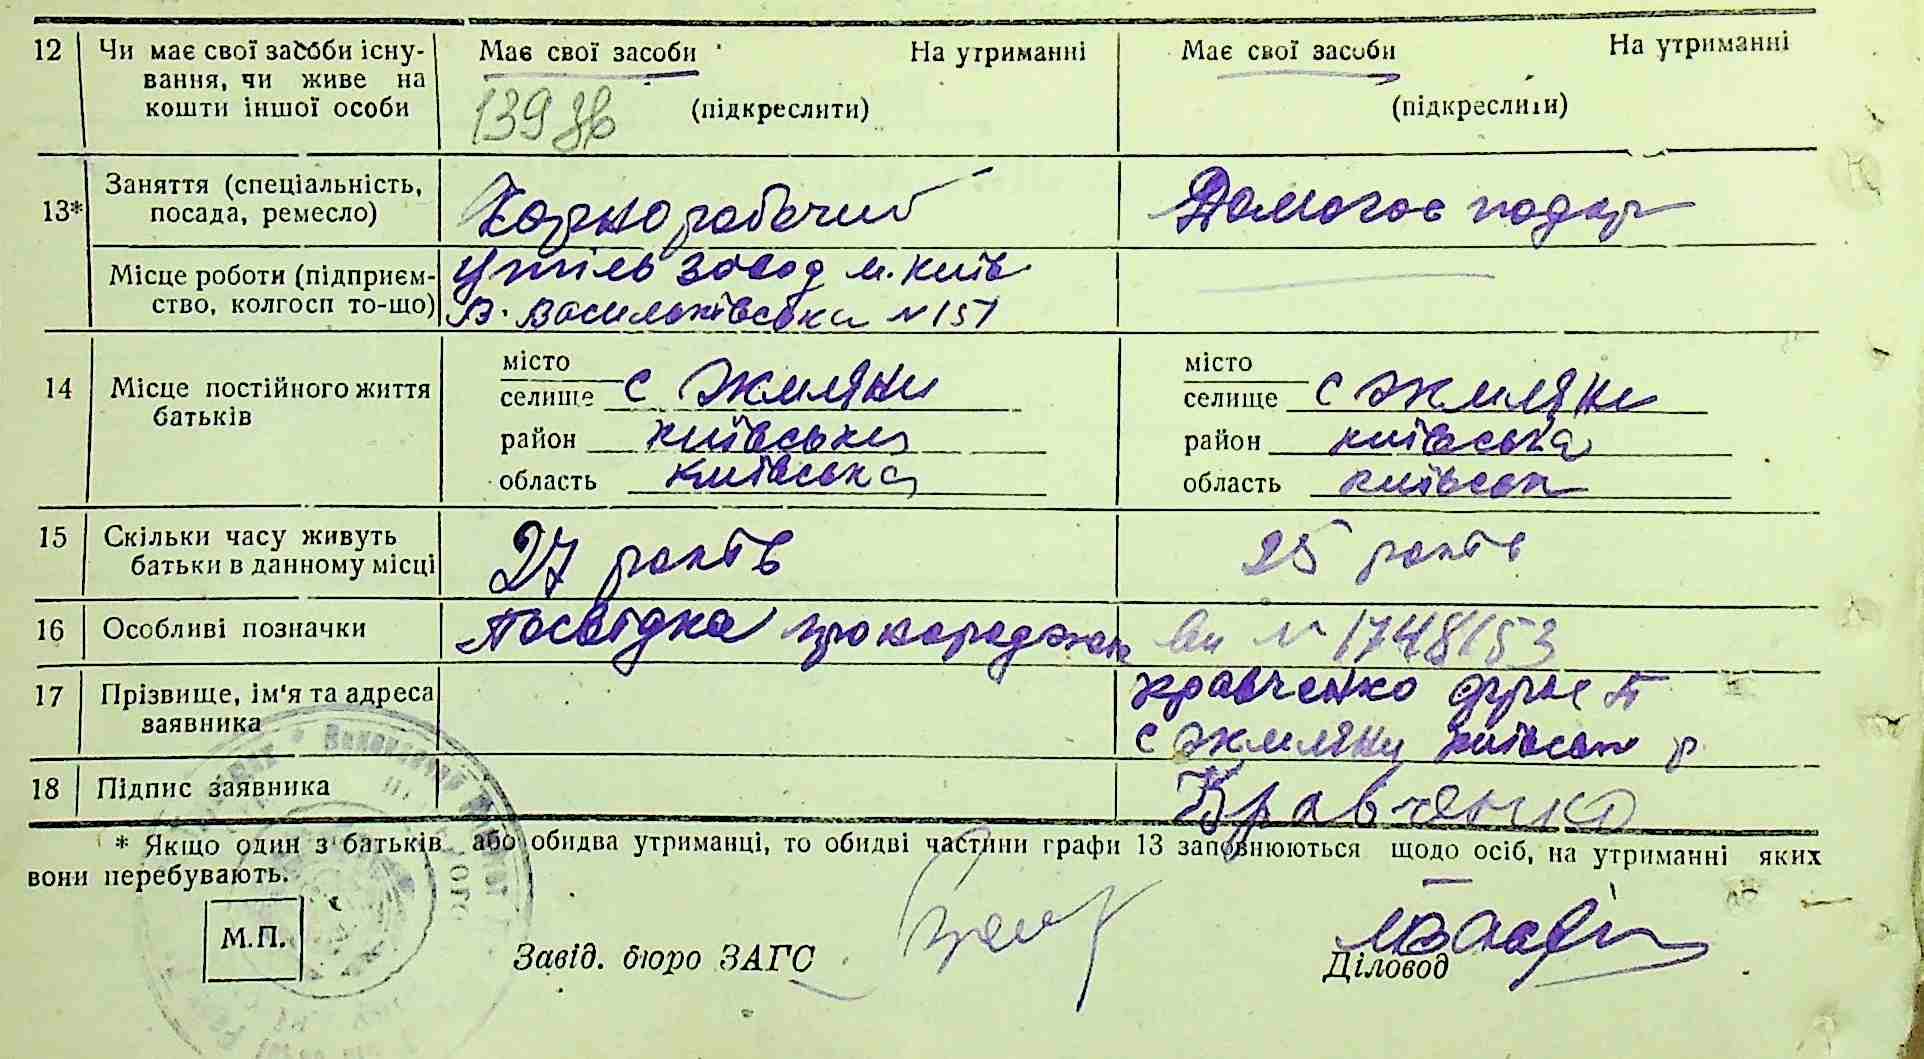 12 Чи має свої засоби існу-
вання, чи живе на
кошти іншої особи
Має свої засоби На утриманні
(підкреслити)
139
Має свої засоби На утриманні
(підкреслити)
13* Заняття (спеціальність,
посада, ремесло)
Чорноробочий
Домогос подар
Місце роботи (підприєм-
ство, колгосп то-що)
Утіль завод м. Київ
В. Васильківська № 151
14 Місце постійного життя
батьків
місто
селище с Жмляни
район київська
область київська
місто
селище с Жмляни
район київська
область київськ
15 Скільки часу живуть
батьки в данному місці
27 років
25 років
16 Особливі позначки
Посвідка про народжен ня № 1748153
17 Прізвище, ім'я та адреса
заявника
Кравченко П
с Жмляни київськ р
18 Підпис заявника
Кравченко
* Якщо один з батьків або обидва утриманці, то обидві частини графи 13 заповнюються щодо осіб, на утриманні яких
вони перебувають.
М.П.
Завід. бюро ЗАГС
Діловод